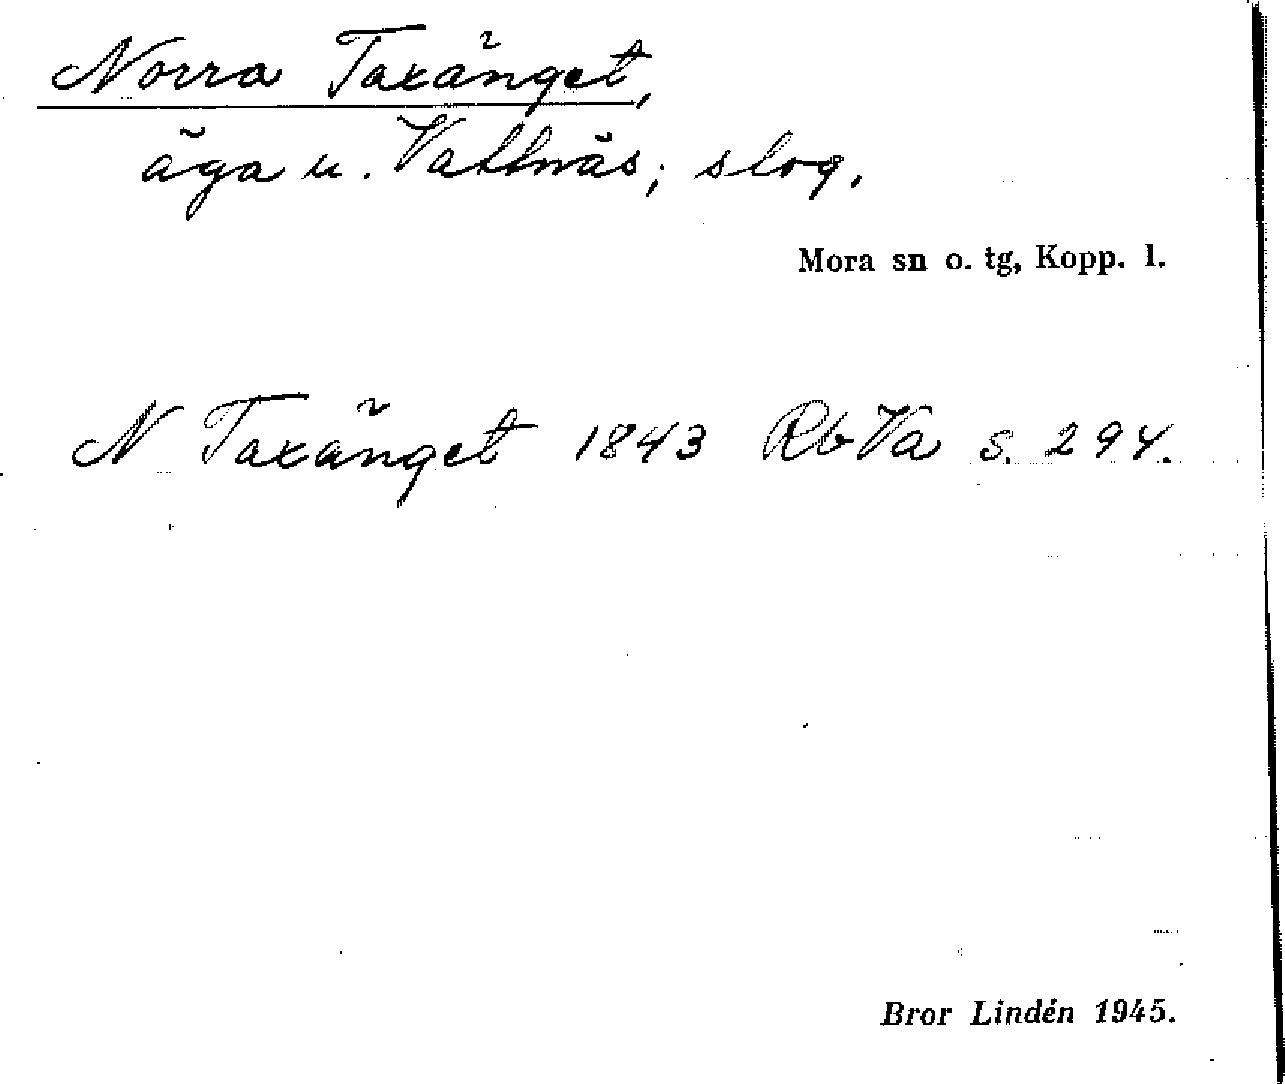 Norra Taxänget,
äga u. Vattnäs; slog.
Mora sn o. tg, Kopp. l.
N Taxänget 1843 Rb Va s. 294.
Bror Lindén 1945.